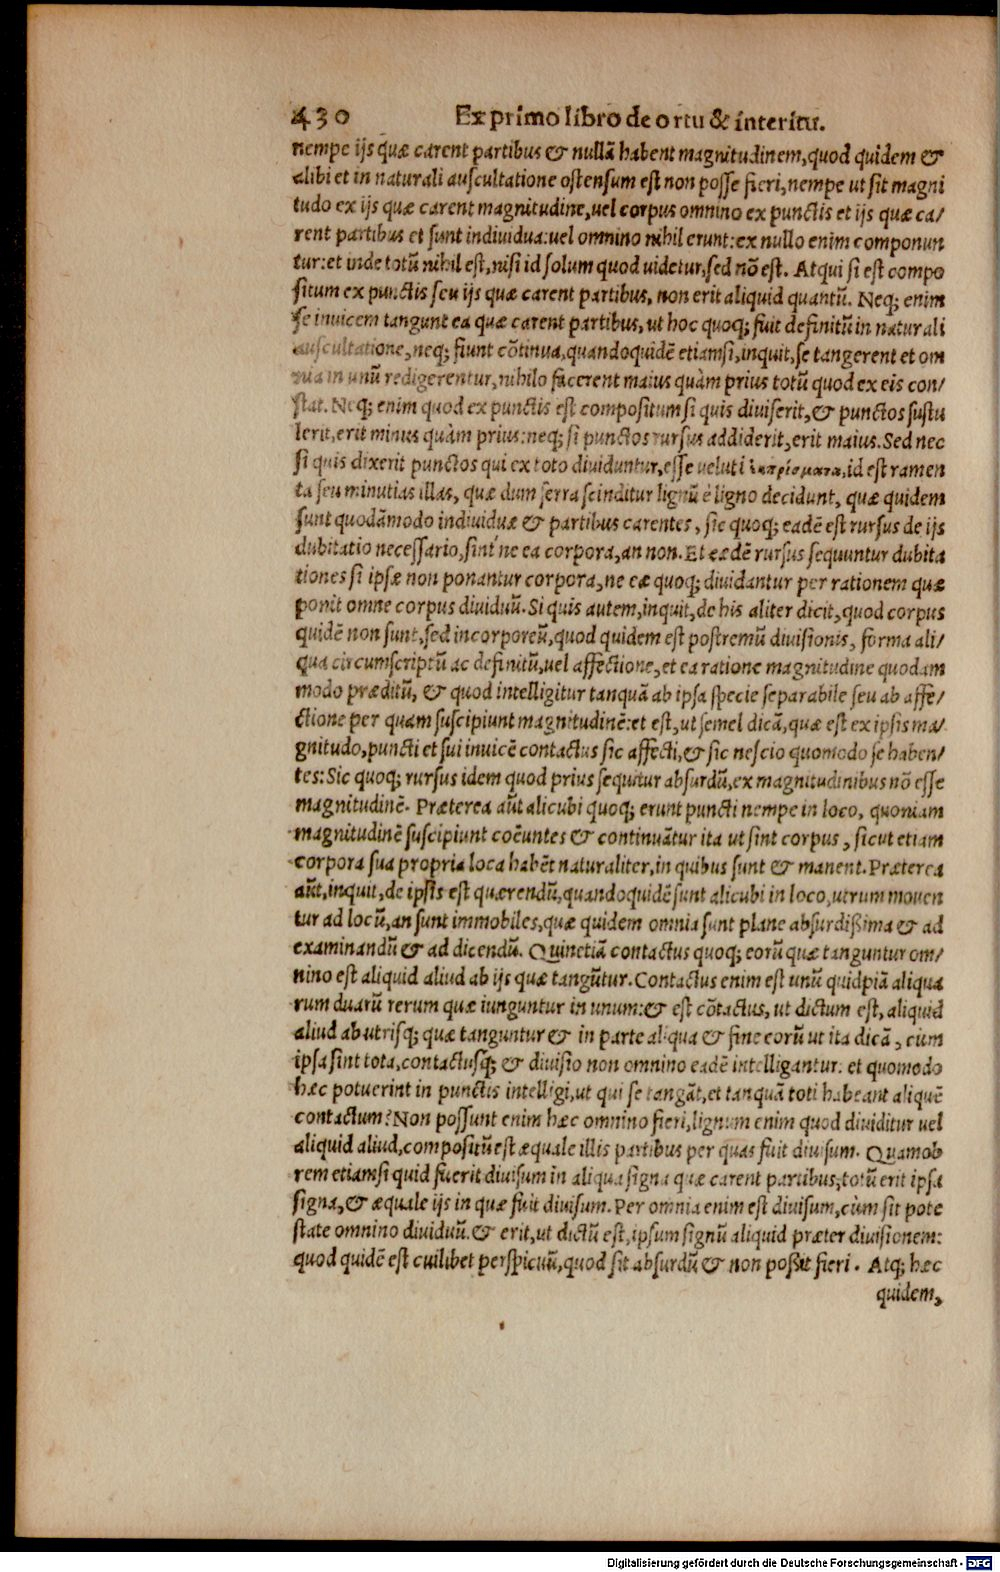 430 Ex primo libro de ortu & interitu.
nempe ijs quæ carent partibus & nullã habent magnitudinem, quod quidem &
alibi et in naturali auscultatione ostensum est non posse fieri, nempe ut sit magni
tudo ex ijs quæ carent magnitudine, uel corpus omnino ex punctis et ijs quæ ca/
rent partibus et sunt indiuidua: uel omnino nihil erunt: ex nullo enim componun
tur: et inde totũ nihil est, nisi id solum quod uidetur, sed nõ est. Atqui si est compo
situm ex punctis seu ijs quæ carent partibus, non erit aliquid quantũ. Neq; enim
se inuicem tangunt ea quæ carent partibus, ut hoc quoq; fuit definitũ in naturali
auscultatione, neq; fiunt cõtinua, quandoquidẽ etiamsi, inquit, se tangerent et om
nia in unũ redigerentur, nihilo facerent maius quàm prius totũ quod ex eis con/
stat. Neq; enim quod ex punctis est compositum si quis diuiserit, & punctos sustu
lerit, erit minus quàm prius: neq; si punctos rursus addiderit, erit maius. Sed nec
si quis dixerit punctos qui ex toto diuiduntur, esse ueluti ἐκπρίσματα, id est ramen
ta seu minutias illas, quæ dum serra scinditur lignũ è ligno decidunt, quæ quidem
sunt quodãmodo indiuiduæ & partibus carentes, sic quoq; eadẽ est rursus de ijs
dubitatio necessario, sint ne ea corpora, an non. Et eædẽ rursus sequuntur dubita
tiones si ipsæ non ponantur corpora, ne eæ quoq; diuidantur per rationem quæ
ponit omne corpus diuiduũ. Si quis autem, inquit, de his aliter dicit, quod corpus
quidẽ non sunt, sed incorporeũ, quod quidem est postremũ diuisionis, forma ali/
qua circumscriptũ ac definitũ, uel affectione, et ea ratione magnitudine quodam
modo præditũ, & quod intelligitur tanquã ab ipsa specie separabile seu ab affe/
ctione per quam suscipiunt magnitudinẽ: et est, ut semel dicã, quæ est ex ipsis ma/
gnitudo, puncti et sui inuicẽ contactus sic affecti, & sic nescio quomodo se haben/
tes: Sic quoq; rursus idem quod prius sequitur absurdũ, ex magnitudinibus nõ esse
magnitudinẽ. Præterea aũt alicubi quoq; erunt puncti nempe in loco, quoniam
magnitudinẽ suscipiunt coẽuntes & continuãtur ita ut sint corpus, sicut etiam
corpora sua propria loca habẽt naturaliter, in quibus sunt & manent. Præterea
aũt, inquit, de ipsis est quærendũ, quandoquidẽ sunt alicubi in loco, utrum mouen
tur ad locũ, an sunt immobiles, quæ quidem omnia sunt plane absurdißima & ad
examinandũ & ad dicendũ. Quinetiã contactus quoq; eorũ quæ tanguntur om/
nino est aliquid aliud ab ijs quæ tangũtur. Contactus enim est unũ quidpiã aliqua
rum duarũ rerum quæ iunguntur in unum: & est cõtactus, ut dictum est, aliquid
aliud ab utrisq; quæ tanguntur & in parte aliqua & fine eorũ ut ita dicã, cùm
ipsa sint tota, contactusq; & diuisio non omnino eadẽ intelligantur: et quomodo
hæc potuerint in punctis intelligi, ut qui se tangãt, et tanquã toti habeant aliquẽ
contactum? Non possunt enim hæc omnino fieri, lignum enim quod diuiditur uel
aliquid aliud, compositũ est æquale illis partibus per quas fuit diuisum. Quamob
rem etiamsi quid fuerit diuisum in aliqua signa quæ carent partibus, totũ erit ipsa
signa, & æquale ijs in quæ fuit diuisum. Per omnia enim est diuisum, cùm sit pote
state omnino diuiduũ. & erit, ut dictũ est, ipsum signũ aliquid præter diuisionem:
quod quidẽ est cuilibet perspicuũ, quod sit absurdũ & non poßit fieri. Atq; hæc
quidem,
Digitalisierung gefördert durch die Deutsche Forschungsgemeinschaft - DFG